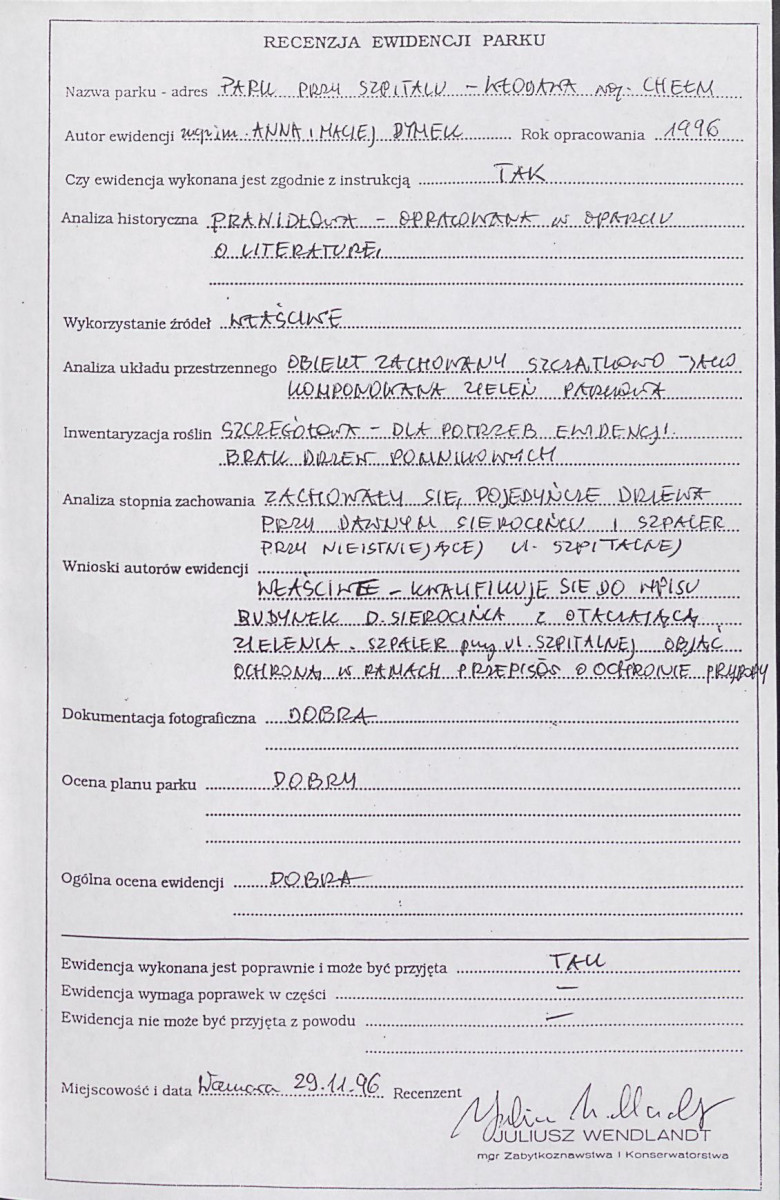 RECENZJA EWIDENCJI PARKU
Nazwa parku - adres PARK PRZY SZPITALU - WŁODAWA woj. CHEŁM
Autor ewidencji mgr inż. ANNA I MACIEJ DYMEK Rok opracowania 1996
Czy ewidencja wykonana jest zgodnie z instrukcją TAK
Analiza historyczna PRAWIDŁOWA - OPRACOWANA W OPARCIU
O LITERATURĘ,
Wykorzystanie źródeł WŁAŚCIWE
Analiza układu przestrzennego OBIEKT ZACHOWANY SZCZĄTKOWO JAKO
KOMPONOWANA ZIELEŃ PARKOWA
Inwentaryzacja roślin SZCZEGÓŁOWA - DLA POTRZEB EWIDENCJI.
BRAK DRZEW POMNIKOWYCH
Analiza stopnia zachowania ZACHOWAŁY SIĘ POJEDYŃCZE DRZEWA
PRZY DAWNYM SIEROCIŃCU I SZPALER
PRZY NIEISTNIEJĄCEJ UL. SZPITALNEJ
Wnioski autorów ewidencji
WŁAŚCIWE - KWALIFIKUJE SIĘ DO WPISU
BUDYNEK D. SIEROCIŃCA Z OTACZAJĄCĄ
ZIELENIĄ. SZPALER przy ul. SZPITALNEJ OBJĄĆ
OCHRONĄ W RAMACH PRZEPISÓW O OCHRONIE PRZYRODY
Dokumentacja fotograficzna DOBRA
Ocena planu parku DOBRY
Ogólna ocena ewidencji DOBRA
Ewidencja wykonana jest poprawnie i może być przyjęta TAK
Ewidencja wymaga poprawek w części —
Ewidencja nie może być przyjęta z powodu —
Miejscowość i data Warszawa 29.11.96 Recenzent
JULIUSZ WENDLANDT
mgr Zabytkoznawstwa i Konserwatorstwa